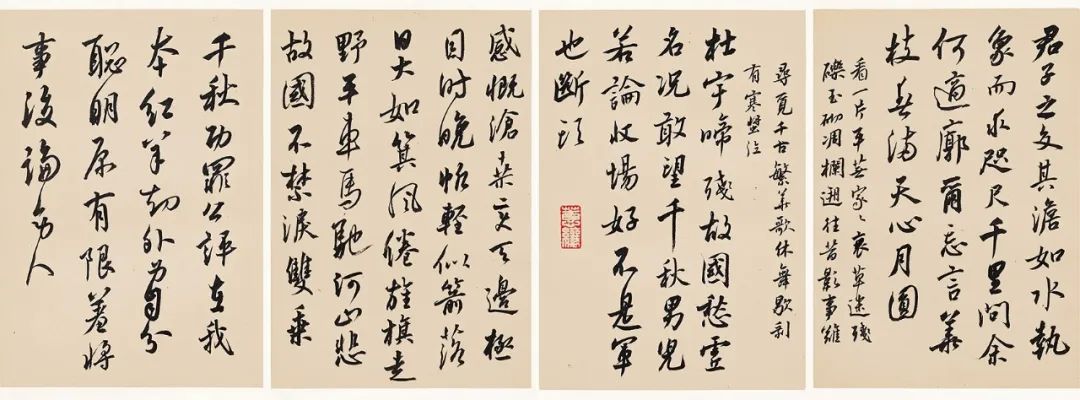 君子之交其澹如水執
象而求咫尺千里問余
何適廓爾忘言華
枝春滿天心月圓
看一片平蕪家々衰草迷殘
礫玉砌凋欄溯往昔影事難
尋覓千古繁華歌休舞歇剩
有寒螿泣
杜宇啼殘故國愁虛
名況敢望千秋男兒
若論收場好不是軍
也斷頭
感慨滄桑變天邊極
目時晚帆輕似箭落
日大如箕風捲旌旗走
野平車馬馳河山悲
故國不禁淚雙垂
千秋功罪公評在我
本紅羊劫外身自分
聰明原有限羞將
事後論旁人